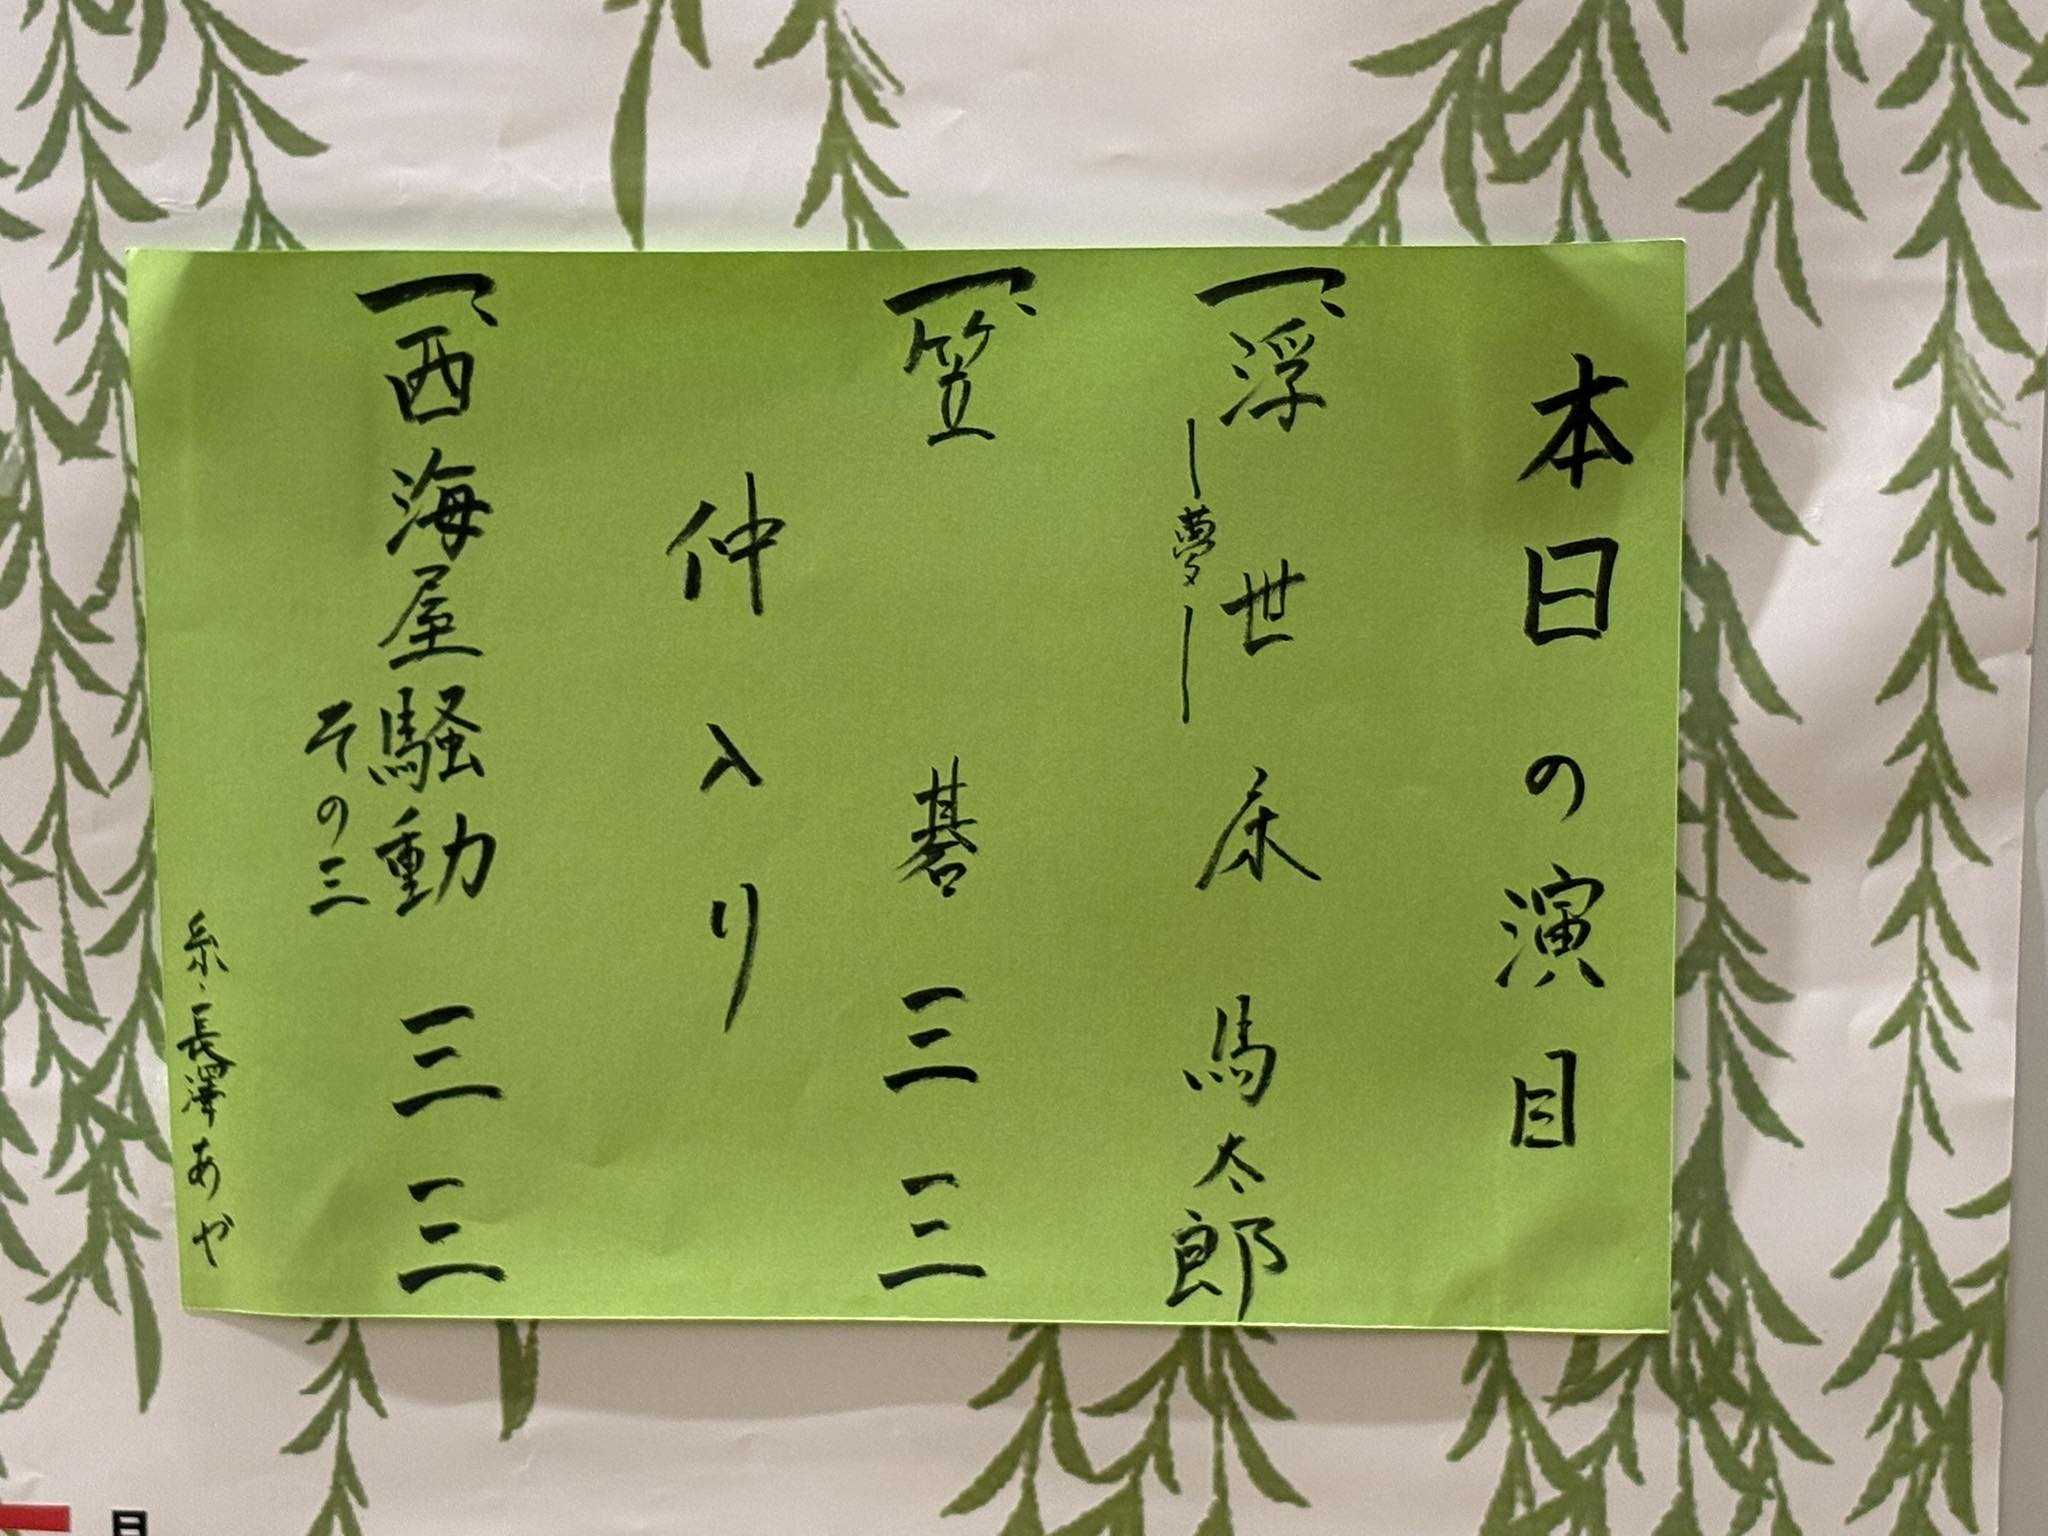 本日の演目
一、浮世床 馬太郎
―夢―
一、笠碁 三三
仲入り
一、西海屋騒動 三三
その三
糸・長澤あや
月